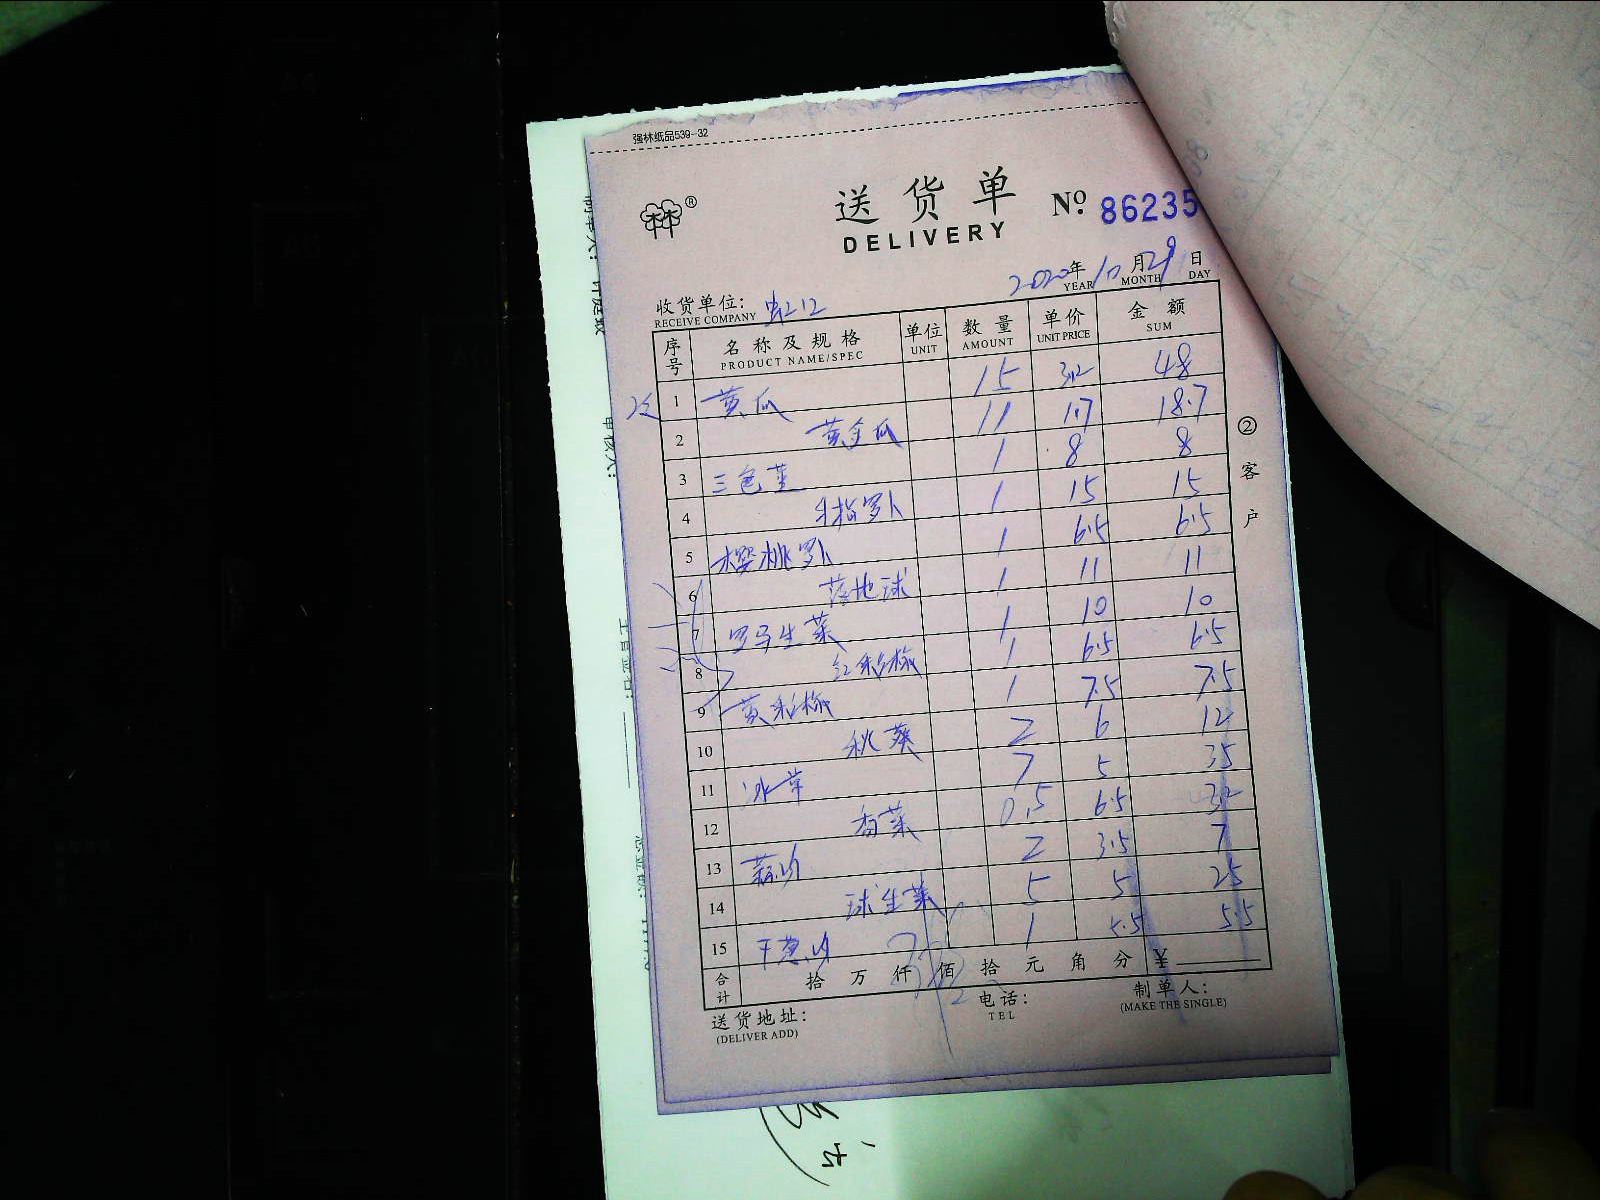 强林纸品539-32
送货单 No. 86235
DELIVERY
2020年10月29日
YEAR MONTH DAY
收货单位:
RECEIVE COMPANY
序号 名称及规格 单位 数量 单价 金额
PRODUCT NAME/SPEC UNIT AMOUNT UNIT PRICE SUM
1 黄瓜 15 3.2 48
2 黄金瓜 11 1.7 18.7
3 三色堇 1 8 8
4 手指萝卜 1 15 15
5 樱桃萝卜 1 6.5 6.5
6 落地球 1 11 11
7 罗马生菜 1 10 10
8 红彩椒 1 6.5 6.5
9 黄彩椒 1 7.5 7.5
10 秋葵 2 6 12
11 冰草 7 5 35
12 香菜 0.5 6.5 3.2
13 2 3.5 7
14 球生菜 5 5 25
15 干葱 1 5.5 5.5
合计 拾 万 仟 佰 拾 元 角 分 ¥
送货地址: 电话: 制单人:
(DELIVER ADD) TEL (MAKE THE SINGLE)
②客户